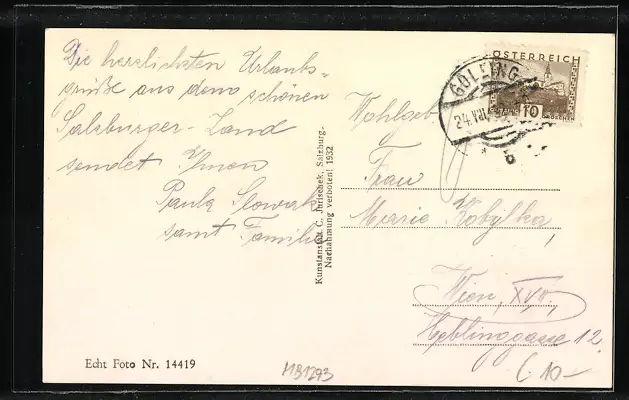 Die herzlichsten Urlaubs-
grüße aus dem schönen
Salzburger-Land
sendet Ihnen
Paula Slowak
samt Familie
Kunstanstalt C. Jurischek, Salzburg.
Nachahmung verboten! 1932
Echt Foto Nr. 14419
MB1293
ÖSTERREICH
10
GROSCHEN
GOLLING
24.VIII
b
Wohlgeb
Frau
Marie Kobylka,
Wien, XV.,
12
(10-